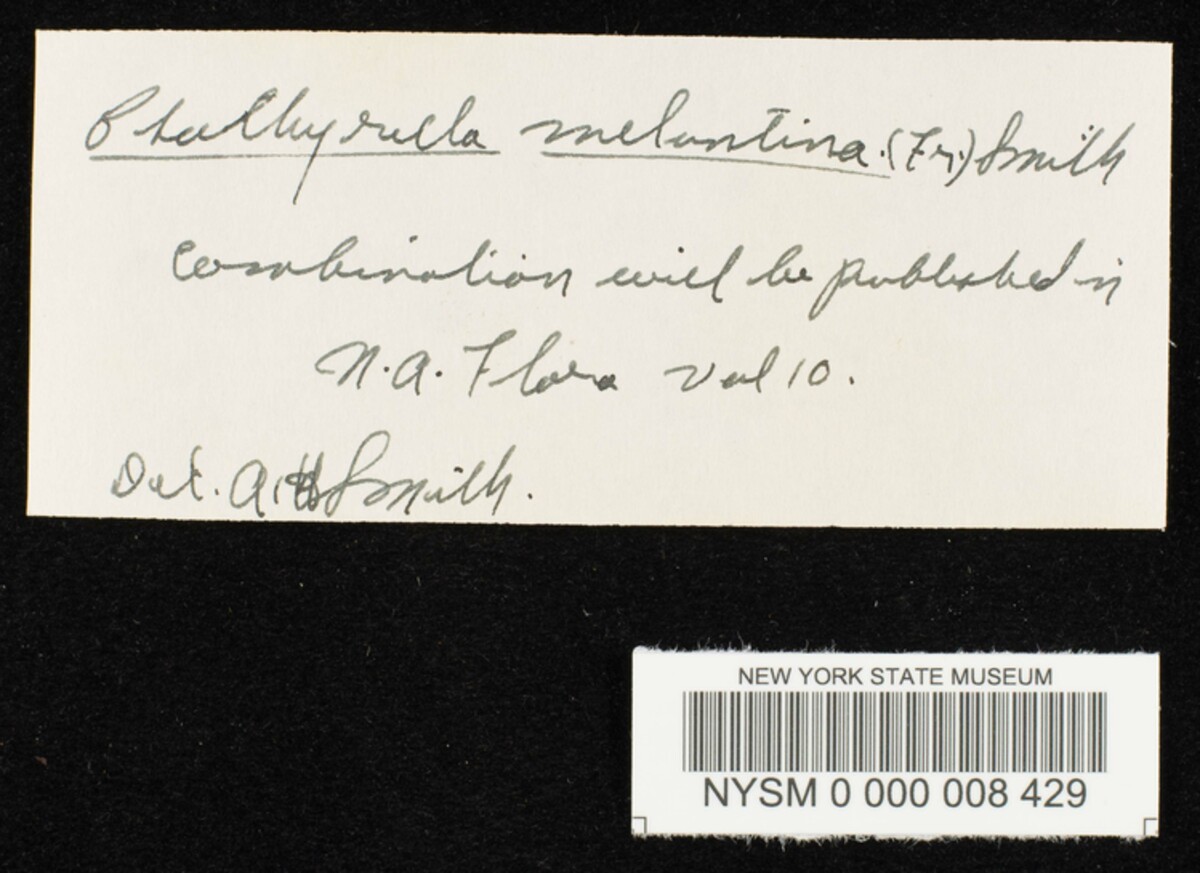 Psathyrella melantina. (Fr.) Smith
Combination will be published in
N.A. Flora Vol 10.
Det. A.H Smith.
NEW YORK STATE MUSEUM
NYSM 0 000 008 429